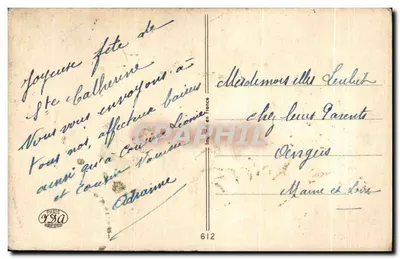 Joyeuse fête de
Ste Catherine
Nous vous envoyons à
tous nos affectueux baisers
ainsi qu'à cousine Léonie
et cousin
Adrienne
Mesdemoiselles
chez leurs Parents
Angers
Maine et Loire
CPAPHIL
612